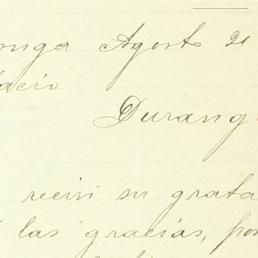 onga Agost 21
lacio
Durang
recivi su grata
las gracias, por